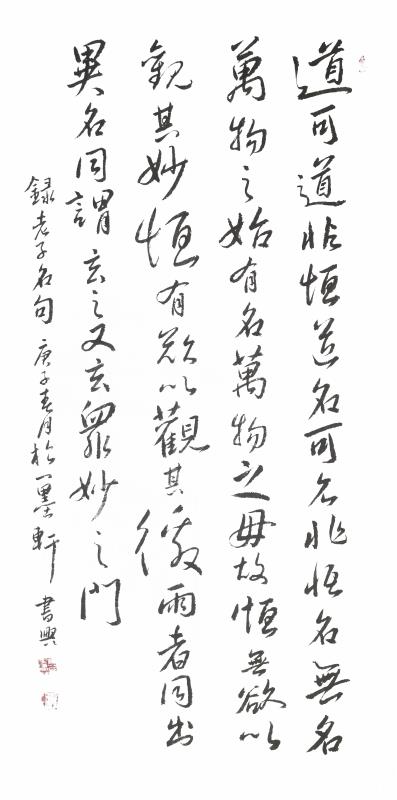 道可道非恒道名可名非恒名無名
萬物之始有名萬物之母故恒無欲以
觀其妙恒有欲以觀其徼兩者同出
異名同謂玄之又玄眾妙之門
録老子名句庚子春月於一墨軒書興